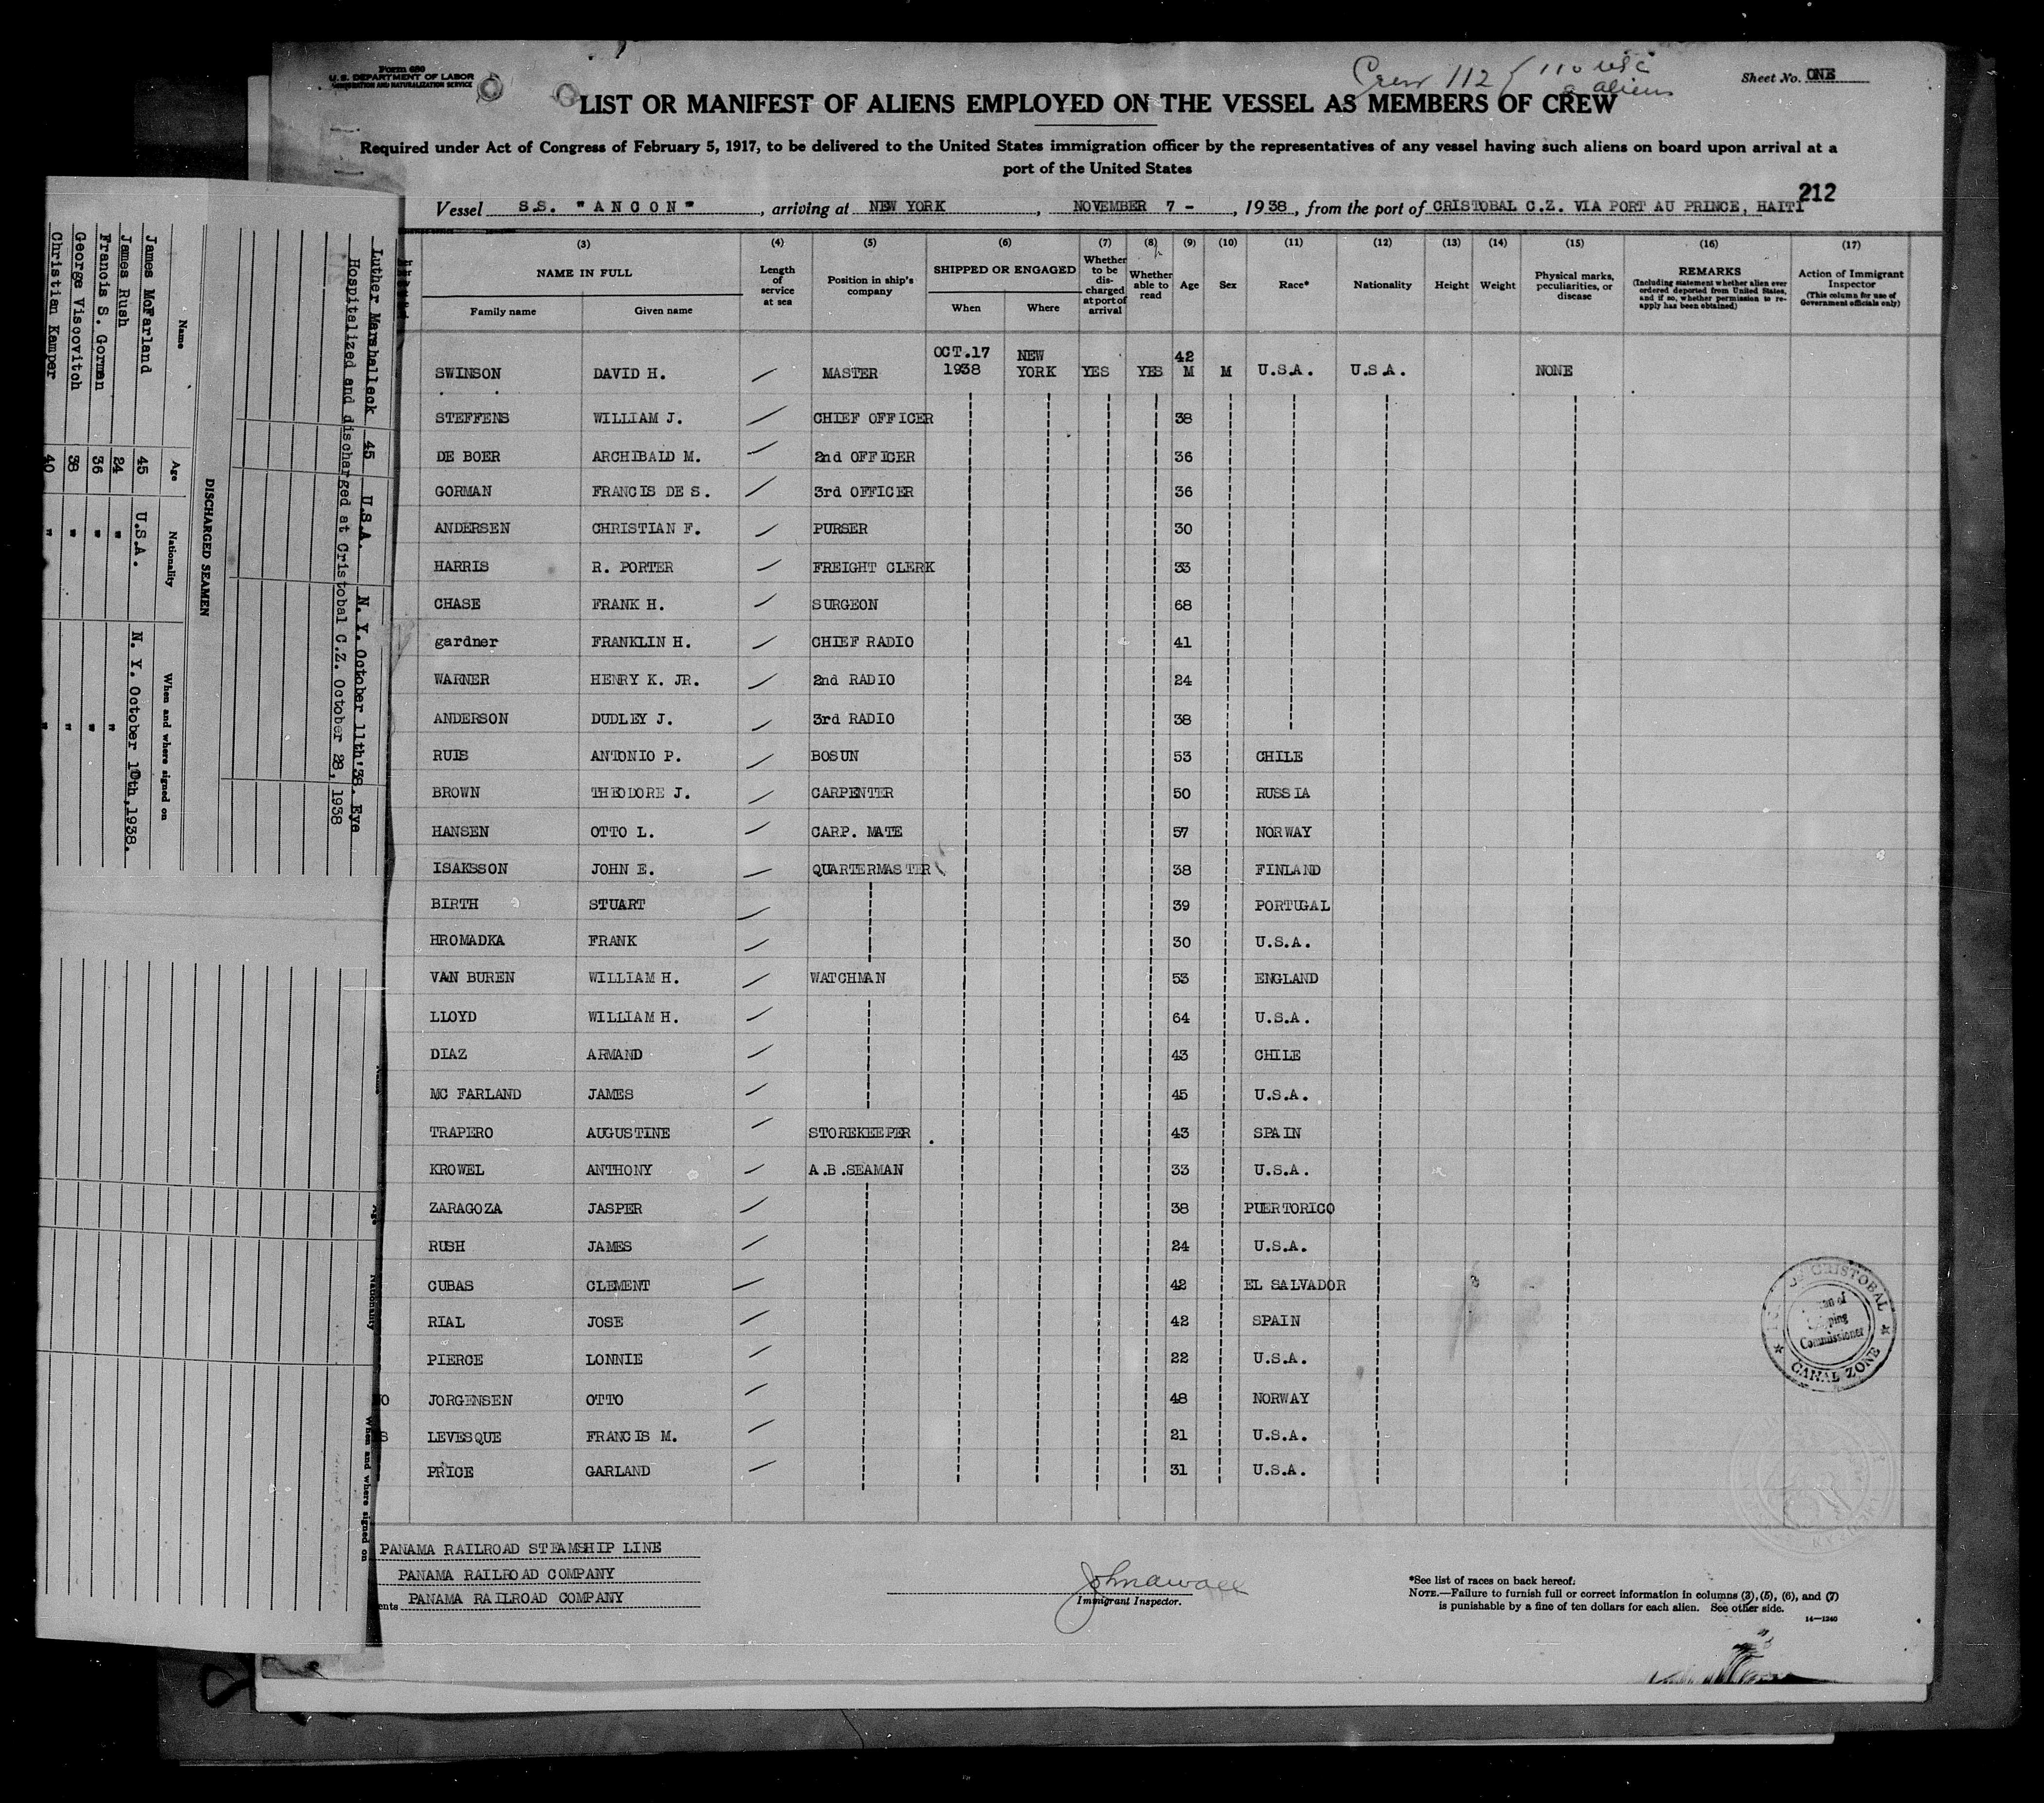 Form 680
U. S. DEPARTMENT OF LABOR
IMMIGRATION AND NATURALIZATION SERVICE
Crew 112 { 110 USC
2 aliens
Sheet No. ONE
LIST OR MANIFEST OF ALIENS EMPLOYED ON THE VESSEL AS MEMBERS OF CREW
Required under Act of Congress of February 5, 1917, to be delivered to the United States immigration officer by the representatives of any vessel having such aliens on board upon arrival at a
port of the United States
212
Vessel S.S. "ANCON", arriving at NEW YORK, NOVEMBER 7 -, 1938, from the port of CRISTOBAL C.Z. VIA PORT AU PRINCE, HAITI
(3) (4) (5) (6) (7) (8) (9) (10) (11) (12) (13) (14) (15) (16) (17)
NAME IN FULL
Family name Given name
Length of service at sea
Position in ship's company
SHIPPED OR ENGAGED
When Where
Whether to be discharged at port of arrival
Whether able to read
Age
Sex
Race*
Nationality
Height
Weight
Physical marks, peculiarities, or disease
REMARKS
(Including statement whether alien ever ordered deported from United States, and if so, whether permission to reapply has been obtained)
Action of Immigrant Inspector
(This column for use of Government officials only)
SWINSON DAVID H. MASTER OCT.17 1938 NEW YORK YES YES 42 M M U.S.A. U.S.A. NONE
STEFFENS WILLIAM J. CHIEF OFFICER 38
DE BOER ARCHIBALD M. 2nd OFFICER 36
GORMAN FRANCIS DE S. 3rd OFFICER 36
ANDERSEN CHRISTIAN F. PURSER 30
HARRIS R. PORTER FREIGHT CLERK 33
CHASE FRANK H. SURGEON 68
gardner FRANKLIN H. CHIEF RADIO 41
WARNER HENRY K. JR. 2nd RADIO 24
ANDERSON DUDLEY J. 3rd RADIO 38
RUIS ANTONIO P. BOSUN 53 CHILE
BROWN THEODORE J. CARPENTER 50 RUSSIA
HANSEN OTTO L. CARP. MATE 57 NORWAY
ISAKSSON JOHN E. QUARTERMASTER 38 FINLAND
BIRTH STUART 39 PORTUGAL
HROMADKA FRANK 30 U.S.A.
VAN BUREN WILLIAM H. WATCHMAN 53 ENGLAND
LLOYD WILLIAM H. 64 U.S.A.
DIAZ ARMAND 43 CHILE
MC FARLAND JAMES 45 U.S.A.
TRAPERO AUGUSTINE STOREKEEPER 43 SPAIN
KROWEL ANTHONY A.B.SEAMAN 33 U.S.A.
ZARAGOZA JASPER 38 PUERTORICO
RUSH JAMES 24 U.S.A.
CUBAS CLEMENT 42 EL SALVADOR
RIAL JOSE 42 SPAIN
PIERCE LONNIE 22 U.S.A.
JORGENSEN OTTO 48 NORWAY
LEVESQUE FRANCIS M. 21 U.S.A.
PRICE GARLAND 31 U.S.A.
PANAMA RAILROAD STEAMSHIP LINE
PANAMA RAILROAD COMPANY
PANAMA RAILROAD COMPANY
Immigrant Inspector.
*See list of races on back hereof.
NOTE.—Failure to furnish full or correct information in columns (3), (5), (6), and (7)
is punishable by a fine of ten dollars for each alien. See other side.
14—1240
CRISTOBAL
Commissioner
CANAL ZONE
Luther Marshalleck 45 U.S.A. N. Y. October 11th'38. Eye
Hospitalized and discharged at Cristobal C.Z. October 28, 1938
DISCHARGED SEAMEN
Name Age Nationality When and where signed on
James McFarland 45 U.S.A. N. Y. October 10th,1938.
James Rush 24 " "
Francis S. Gorman 36 " "
George Viscovitch 38 " "
Christian Kamper 40 " "
Nationality
When and where signed on